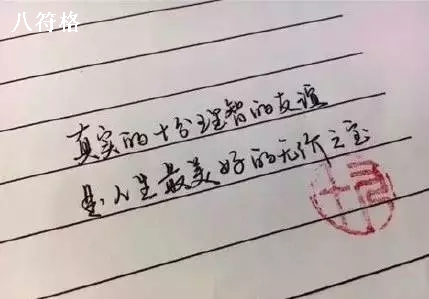 八符格
真实的十分理智的友谊
是人生最美好的无价之宝